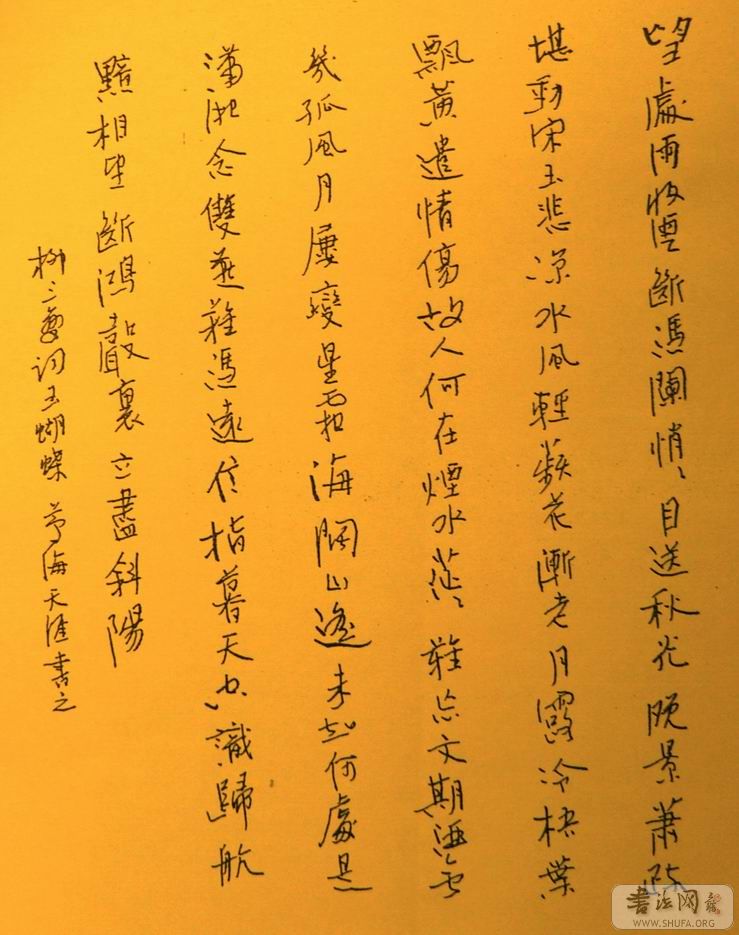 望處雨收雲斷馮闌悄〻目送秋光晚景蕭疏
堪動宋玉悲凉水風輕蘋花漸老月露冷梧葉
飄黃遣情傷故人何在煙水茫〻難忘文期酒會
幾孤風月屢變星霜海闊山遙未知何處是
瀟湘念雙燕難馮遠信指暮天空識歸航
黯相望斷鴻聲裏立盡斜陽
柳三變詞玉蝴蝶 海天涯書之
書法网
WWW.SHUFA.ORG